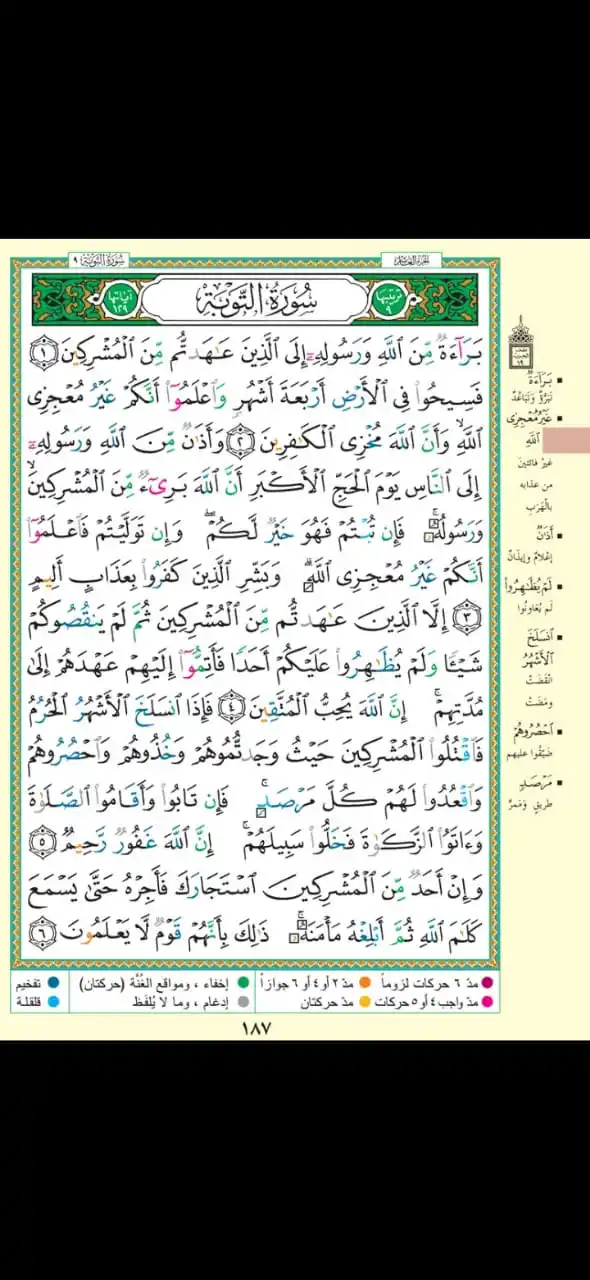 سُورَةُ التَّوْبَةِ ٩
سُورَةُ التَّوْبَةِ
ترتيبها ٩
آياتها ١٢٩
بَرَآءَةٌ مِّنَ ٱللَّهِ وَرَسُولِهِۦٓ إِلَى ٱلَّذِينَ عَٰهَدتُّم مِّنَ ٱلْمُشْرِكِينَ ١
فَسِيحُوا۟ فِى ٱلْأَرْضِ أَرْبَعَةَ أَشْهُرٍ وَٱعْلَمُوٓا۟ أَنَّكُمْ غَيْرُ مُعْجِزِى
ٱللَّهِ ۙ وَأَنَّ ٱللَّهَ مُخْزِى ٱلْكَٰفِرِينَ ٢ وَأَذَٰنٌ مِّنَ ٱللَّهِ وَرَسُولِهِۦٓ
إِلَى ٱلنَّاسِ يَوْمَ ٱلْحَجِّ ٱلْأَكْبَرِ أَنَّ ٱللَّهَ بَرِىٓءٌ مِّنَ ٱلْمُشْرِكِينَ ۙ
وَرَسُولُهُۥ ۚ فَإِن تُبْتُمْ فَهُوَ خَيْرٌ لَّكُمْ ۖ وَإِن تَوَلَّيْتُمْ فَٱعْلَمُوٓا۟
أَنَّكُمْ غَيْرُ مُعْجِزِى ٱللَّهِ ۗ وَبَشِّرِ ٱلَّذِينَ كَفَرُوا۟ بِعَذَابٍ أَلِيمٍ
٣ إِلَّا ٱلَّذِينَ عَٰهَدتُّم مِّنَ ٱلْمُشْرِكِينَ ثُمَّ لَمْ يَنقُصُوكُمْ
شَيْـًٔا وَلَمْ يُظَٰهِرُوا۟ عَلَيْكُمْ أَحَدًا فَأَتِمُّوٓا۟ إِلَيْهِمْ عَهْدَهُمْ إِلَىٰ
مُدَّتِهِمْ ۚ إِنَّ ٱللَّهَ يُحِبُّ ٱلْمُتَّقِينَ ٤ فَإِذَا ٱنسَلَخَ ٱلْأَشْهُرُ ٱلْحُرُمُ
فَٱقْتُلُوا۟ ٱلْمُشْرِكِينَ حَيْثُ وَجَدتُّمُوهُمْ وَخُذُوهُمْ وَٱحْصُرُوهُمْ
وَٱقْعُدُوا۟ لَهُمْ كُلَّ مَرْصَدٍ ۚ فَإِن تَابُوا۟ وَأَقَامُوا۟ ٱلصَّلَوٰةَ
وَءَاتَوُا۟ ٱلزَّكَوٰةَ فَخَلُّوا۟ سَبِيلَهُمْ ۚ إِنَّ ٱللَّهَ غَفُورٌ رَّحِيمٌ ٥
وَإِنْ أَحَدٌ مِّنَ ٱلْمُشْرِكِينَ ٱسْتَجَارَكَ فَأَجِرْهُ حَتَّىٰ يَسْمَعَ
كَلَٰمَ ٱللَّهِ ثُمَّ أَبْلِغْهُ مَأْمَنَهُۥ ۚ ذَٰلِكَ بِأَنَّهُمْ قَوْمٌ لَّا يَعْلَمُونَ ٦
بَرَآءَةٌ
تَبَرُّؤٌ وَتَبَاعُدٌ
غَيْرُ مُعْجِزِى
ٱللَّهِ
غير فائتين
من عذابه
بالهَرَبِ
أَذَٰنٌ
إعْلامٌ وإيذانٌ
لَمْ يُظَٰهِرُوا۟
لَم يُعَاوِنُوا
ٱنسَلَخَ
ٱلْأَشْهُرُ
انْقَضَتْ
ومَضَتْ
ٱحْصُرُوهُمْ
ضَيِّقُوا عليهم
مَرْصَدٍ
طريقٍ ومَمَرٍّ
مدّ ٦ حركات لزوماً
مدّ ٢ أو ٤ أو ٦ جوازاً
إخفاء ، ومواقع الغُنَّة (حركتان)
تفخيم
مدّ واجب ٤ أو ٥ حركات
مدّ حركتان
إدغام ، وما لا يُلفَظ
قلقلة
١٨٧